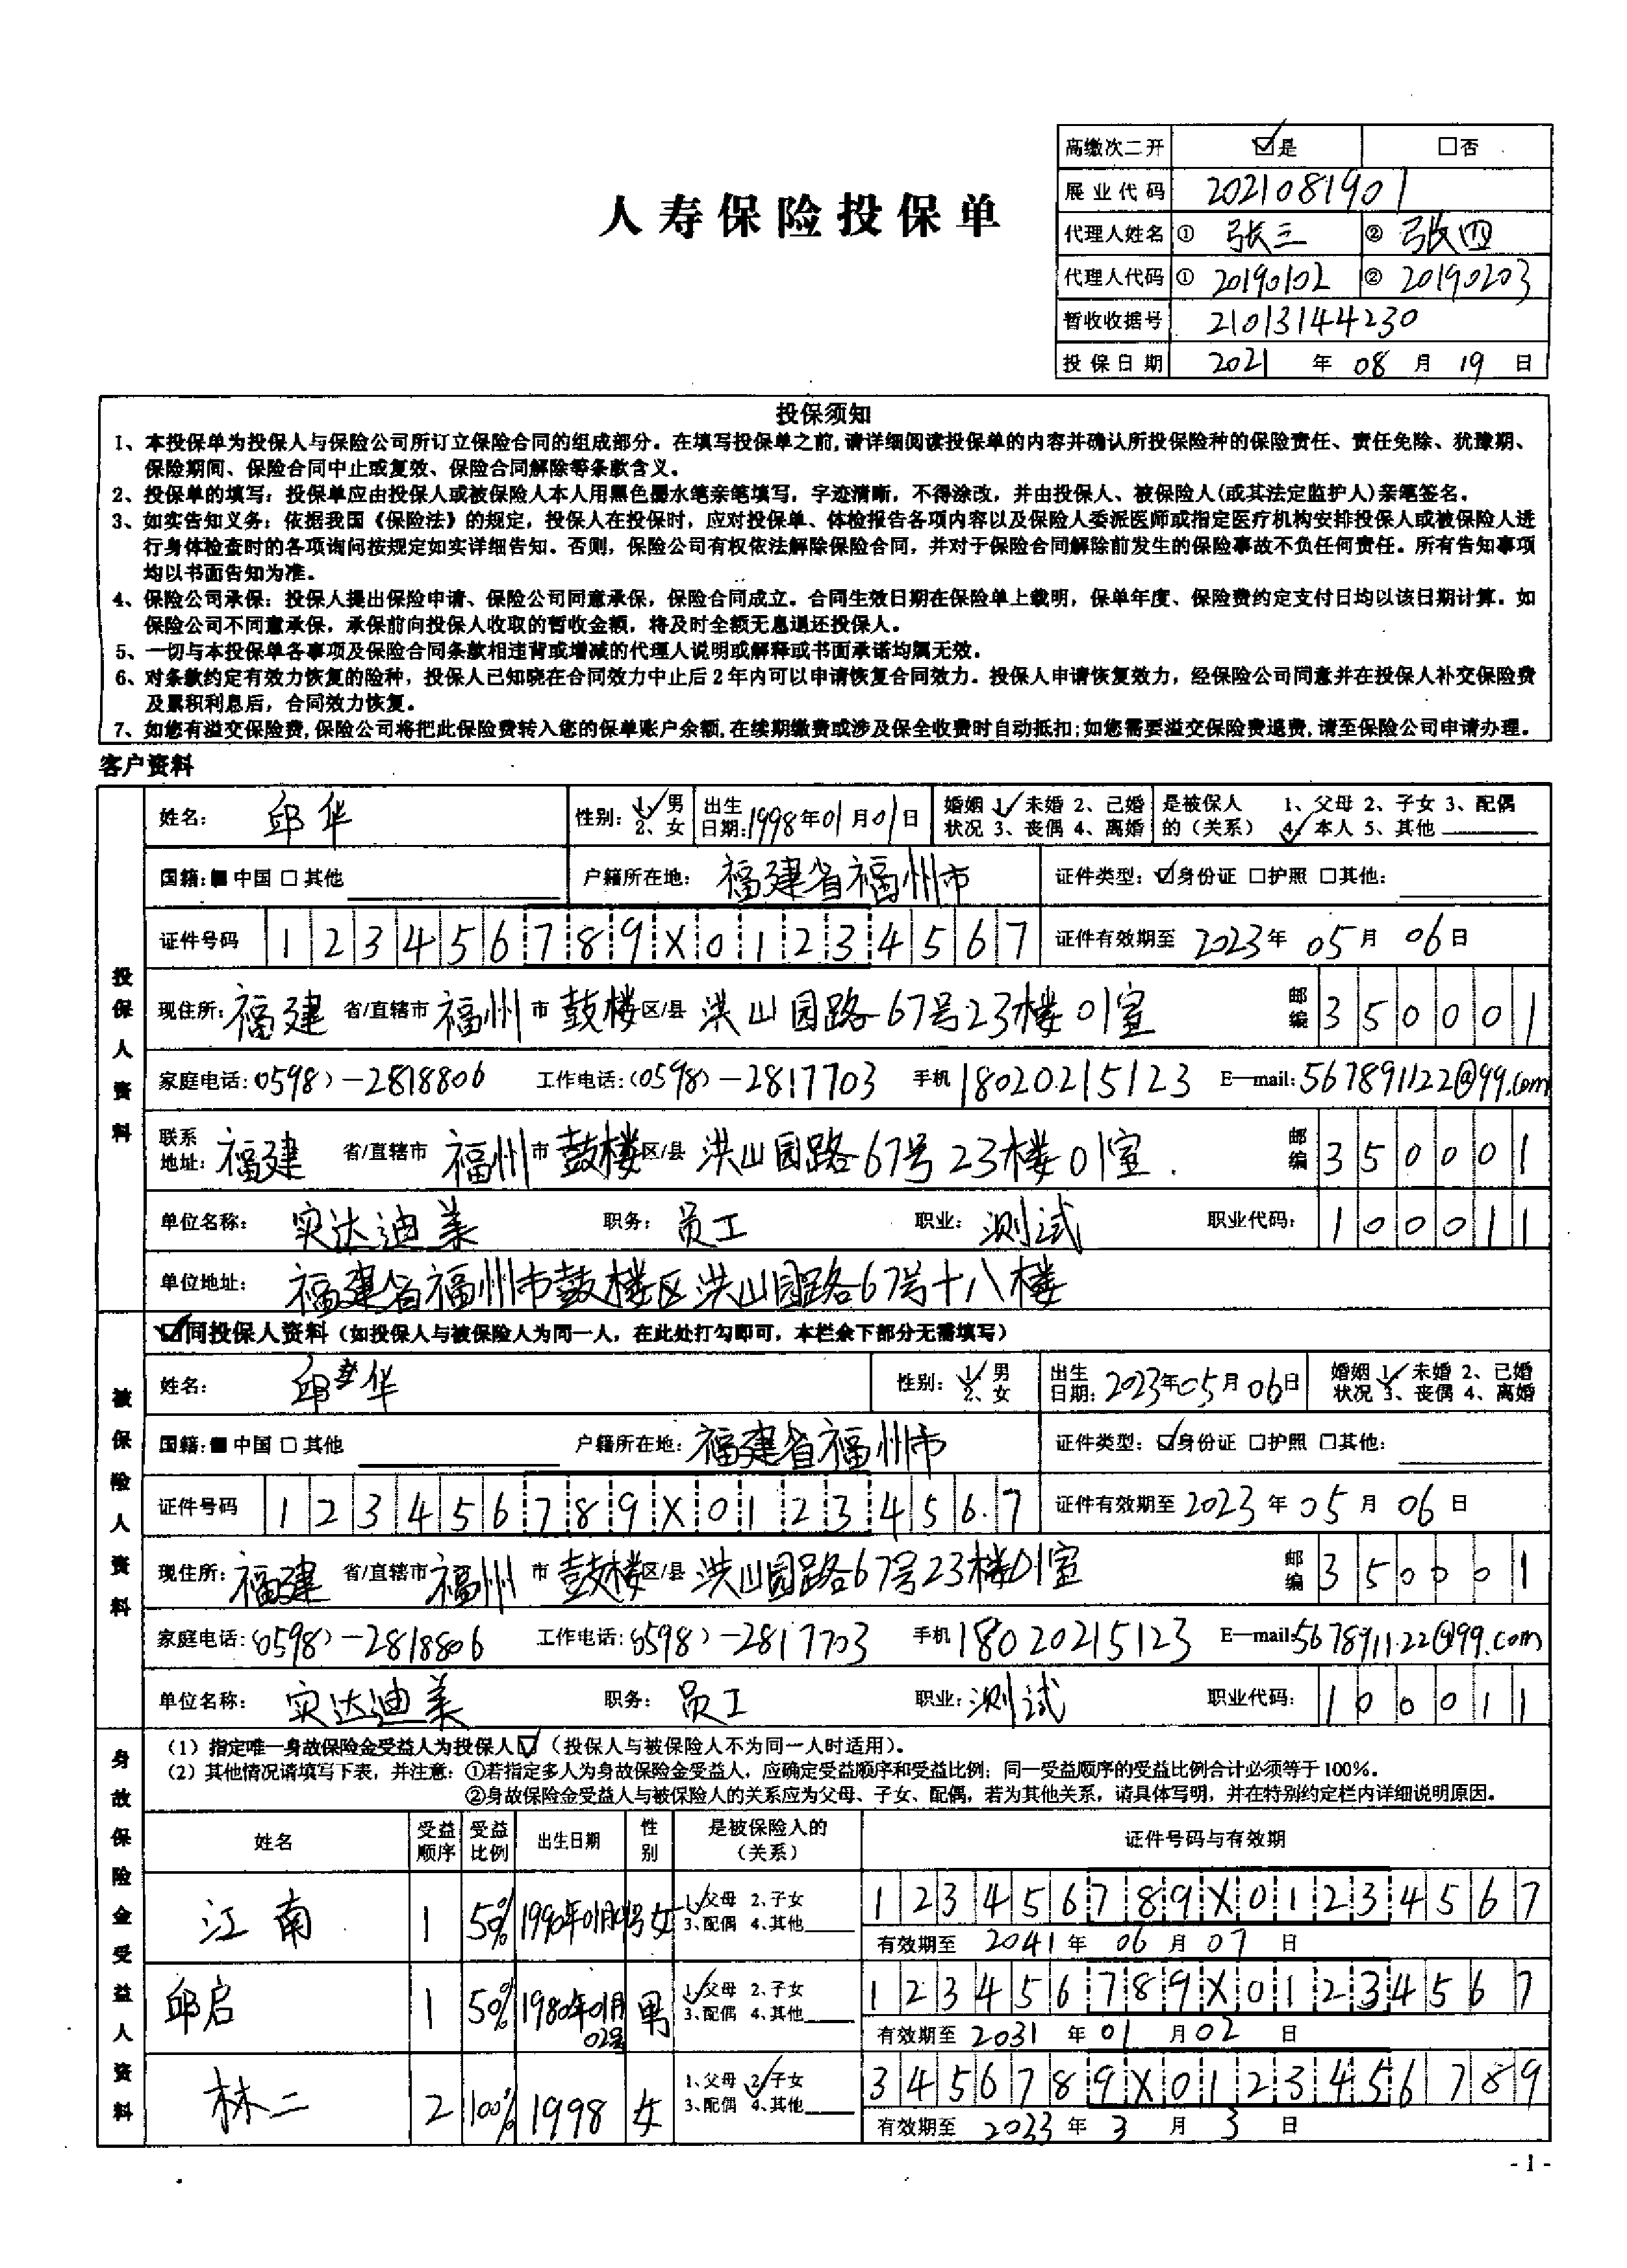 高缴次二开 ☑是 □否
人寿保险投保单
展业代码 2021081901
代理人姓名 ① 张三 ② 张四
代理人代码 ① 20190102 ② 20190203
暂收收据号 21013144230
投保日期 2021 年 08 月 19 日
投保须知
1、本投保单为投保人与保险公司所订立保险合同的组成部分。在填写投保单之前,请详细阅读投保单的内容并确认所投保险种的保险责任、责任免除、犹豫期、
保险期间、保险合同中止或复效、保险合同解除等条款含义。
2、投保单的填写：投保单应由投保人或被保险人本人用黑色墨水笔亲笔填写，字迹清晰，不得涂改，并由投保人、被保险人(或其法定监护人)亲笔签名。
3、如实告知义务：依据我国《保险法》的规定，投保人在投保时，应对投保单、体检报告各项内容以及保险人委派医师或指定医疗机构安排投保人或被保险人进
行身体检查时的各项询问按规定如实详细告知。否则，保险公司有权依法解除保险合同，并对于保险合同解除前发生的保险事故不负任何责任。所有告知事项
均以书面告知为准。
4、保险公司承保：投保人提出保险申请、保险公司同意承保，保险合同成立。合同生效日期在保险单上载明，保单年度、保险费约定支付日均以该日期计算。如
保险公司不同意承保，承保前向投保人收取的暂收金额，将及时全额无息退还投保人。
5、一切与本投保单各事项及保险合同条款相违背或增减的代理人说明或解释或书面承诺均属无效。
6、对条款约定有效力恢复的险种，投保人已知晓在合同效力中止后2年内可以申请恢复合同效力。投保人申请恢复效力，经保险公司同意并在投保人补交保险费
及累积利息后，合同效力恢复。
7、如您有溢交保险费,保险公司将把此保险费转入您的保单账户余额,在续期缴费或涉及保全收费时自动抵扣;如您需要溢交保险费退费,请至保险公司申请办理。
客户资料
投保人资料
姓名： 邱华 性别： 1、男 2、女 出生日期: 1998年01月01日 婚姻状况 1、未婚 2、已婚 3、丧偶 4、离婚 是被保人的（关系） 1、父母 2、子女 3、配偶 4、本人 5、其他
国籍：■中国 □其他 户籍所在地： 福建省福州市 证件类型：☑身份证 □护照 □其他：
证件号码 123456789X01234567 证件有效期至 2023年 05月 06日
现住所：福建 省/直辖市 福州 市 鼓楼 区/县 洪山园路67号23楼01室 邮编 350001
家庭电话:(0598)-2818806 工作电话:(0598)-2817703 手机 18020215123 E—mail: 567891122@99.com
联系地址: 福建 省/直辖市 福州 市 鼓楼 区/县 洪山园路67号23楼01室. 邮编 350001
单位名称： 实达迪美 职务： 员工 职业： 测试 职业代码： 100011
单位地址： 福建省福州市鼓楼区洪山园路67号十八楼
被保险人资料
☑同投保人资料（如投保人与被保险人为同一人，在此处打勾即可，本栏余下部分无需填写）
姓名： 邱华 性别： 1、男 2、女 出生日期: 2023年05月06日 婚姻状况 1、未婚 2、已婚 3、丧偶 4、离婚
国籍：■中国 □其他 户籍所在地： 福建省福州市 证件类型：☑身份证 □护照 □其他：
证件号码 123456789X01234567 证件有效期至 2023 年 05 月 06 日
现住所：福建 省/直辖市 福州 市 鼓楼 区/县 洪山园路67号23楼01室 邮编 350001
家庭电话:(0598)-2818806 工作电话:(0598)-2817703 手机 18020215123 E—mail: 567891122@99.com
单位名称： 实达迪美 职务： 员工 职业： 测试 职业代码： 100011
身故保险金受益人资料
（1）指定唯一身故保险金受益人为投保人☑（投保人与被保险人不为同一人时适用）。
（2）其他情况请填写下表，并注意：①若指定多人为身故保险金受益人，应确定受益顺序和受益比例；同一受益顺序的受益比例合计必须等于100%。
②身故保险金受益人与被保险人的关系应为父母、子女、配偶，若为其他关系，请具体写明，并在特别约定栏内详细说明原因。
姓名 受益顺序 受益比例 出生日期 性别 是被保险人的（关系） 证件号码与有效期
江南 1 50% 1990年01月01号 女 1、父母 2、子女 3、配偶 4、其他 123456789X01234567
有效期至 2041 年 06 月 07 日
邱启 1 50% 1980年01月02号 男 1、父母 2、子女 3、配偶 4、其他 123456789X01234567
有效期至 2031 年 01 月 02 日
林二 2 100% 1998 女 1、父母 2、子女 3、配偶 4、其他 3456789X0123456789
有效期至 2033 年 3 月 3 日
- 1 -